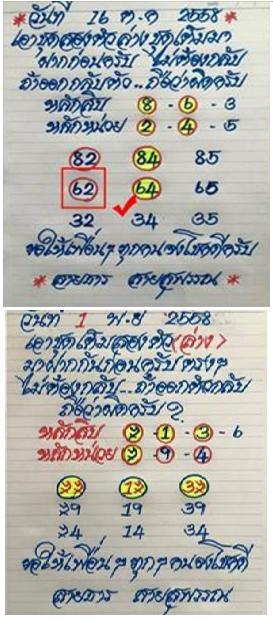 วันที่ 16 ต.ค 2558
เอาชุดสองตัวล่าง ชุดเดิมมา
ฝากก่อนครับ ไม่ต้องกลับ
ถ้าออกกลับตัว...ถือว่าผิดครับ
หลักสิบ 8 - 6 - 3
หลักหน่วย 2 - 4 - 5
82 84 85
62 64 65
32 34 35
ขอให้เพื่อนๆ ทุกคนจงโชคดีครับ
สายธาร สายสุพรรณ
วันที่ 1 พ.ย 2558
เอาชุดเดิมสองตัว(ล่าง)
มาฝากกันก่อนครับ ตรงๆ
ไม่ต้องกลับ...ถ้าออกตัวกลับ
ถือว่าผิดครับ
หลักสิบ - 1 - 3 - 6
หลักหน่วย - 9 - 4
19 39
14 34
ขอให้เพื่อนๆ ทุกๆคนจงโชคดี
สายธาร สายสุพรรณ